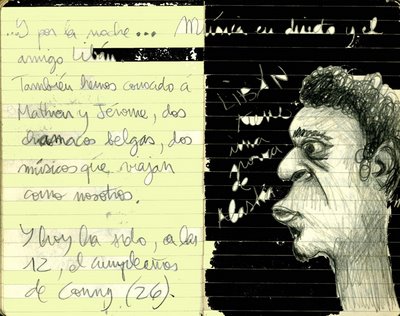 ...Y por la noche... Música en directo y el
amigo Libán
También hemos conocido á
Mathieu y Jérome, dos
chamacos belgas, dos
músicos que viajan
como nosotros.
Y hoy ha sido, a las
12, el cumpleaños
de Conny (26).
LIBÁN
pone
una
de